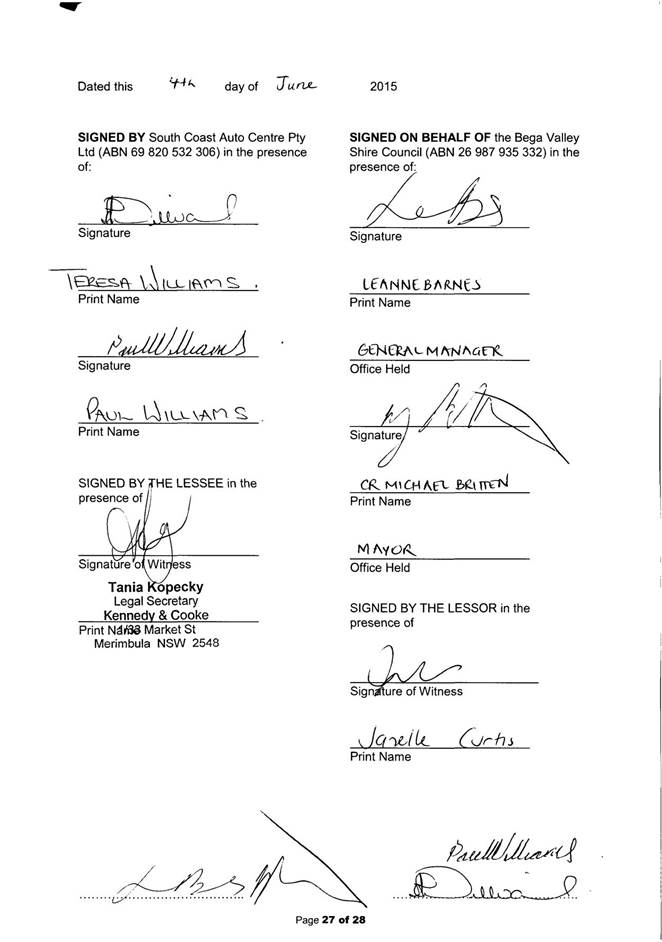 Dated this 4th day of June 2015
SIGNED BY South Coast Auto Centre Pty
Ltd (ABN 69 820 532 306) in the presence
of:
Signature
TERESA WILLIAMS.
Print Name
Paul Williams
Signature
PAUL WILLIAMS.
Print Name
SIGNED BY THE LESSEE in the
presence of
Signature of Witness
Tania Kopecky
Legal Secretary
Kennedy & Cooke
Print Name Market St
Merimbula NSW 2548
SIGNED ON BEHALF OF the Bega Valley
Shire Council (ABN 26 987 935 332) in the
presence of:
Signature
LEANNE BARNES
Print Name
GENERAL MANAGER
Office Held
Signature
CR MICHAEL BRITTEN
Print Name
MAYOR
Office Held
SIGNED BY THE LESSOR in the
presence of
Signature of Witness
Janelle Curtis
Print Name
Paul Williams
Page 27 of 28